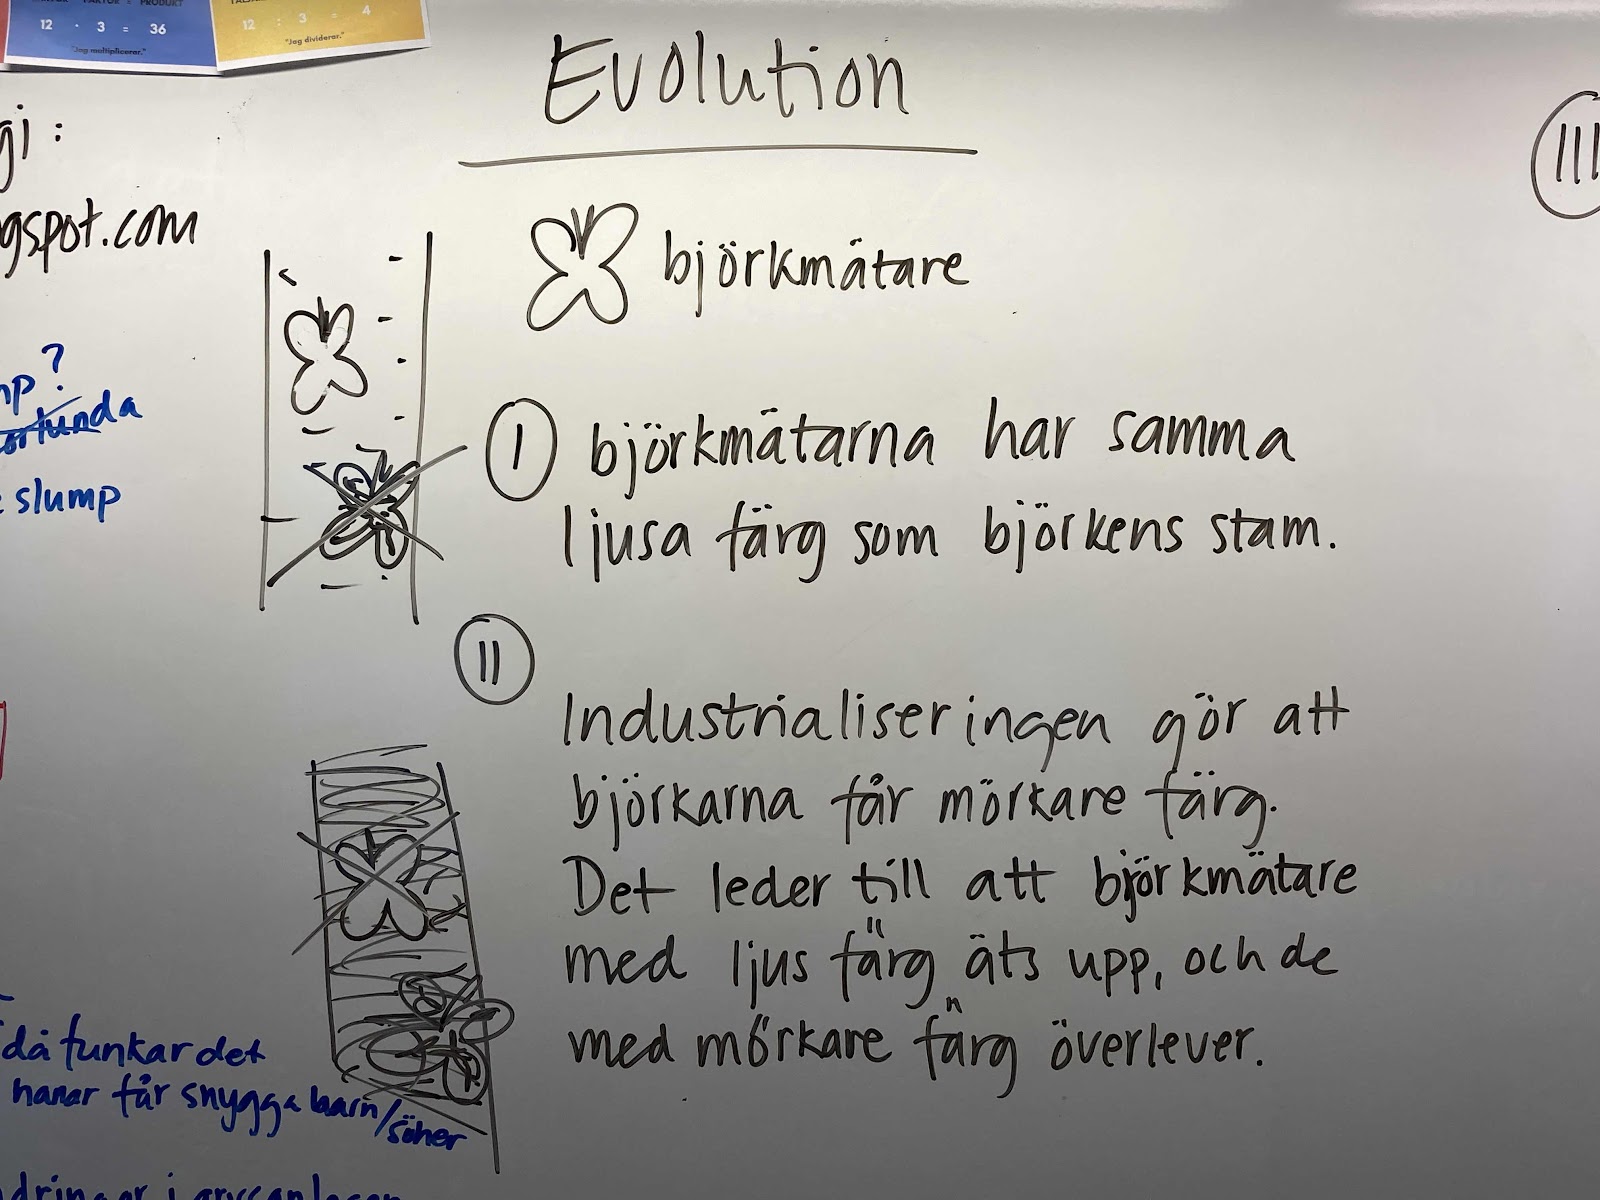 FAKTOR · FAKTOR = PRODUKT
12 · 3 = 36
"Jag multiplicerar."
12 : 3 = 4
"Jag dividerar."
Evolution
gi :
gspot.com
björkmätare
III
mp?
slump
I björkmätarna har samma
ljusa färg som björkens stam.
II
Industrialiseringen gör att
björkarna får mörkare färg.
Det leder till att björkmätare
med ljus färg äts upp, och de
med mörkare färg överlever.
då funkar det
hanar får snygga barn/söner